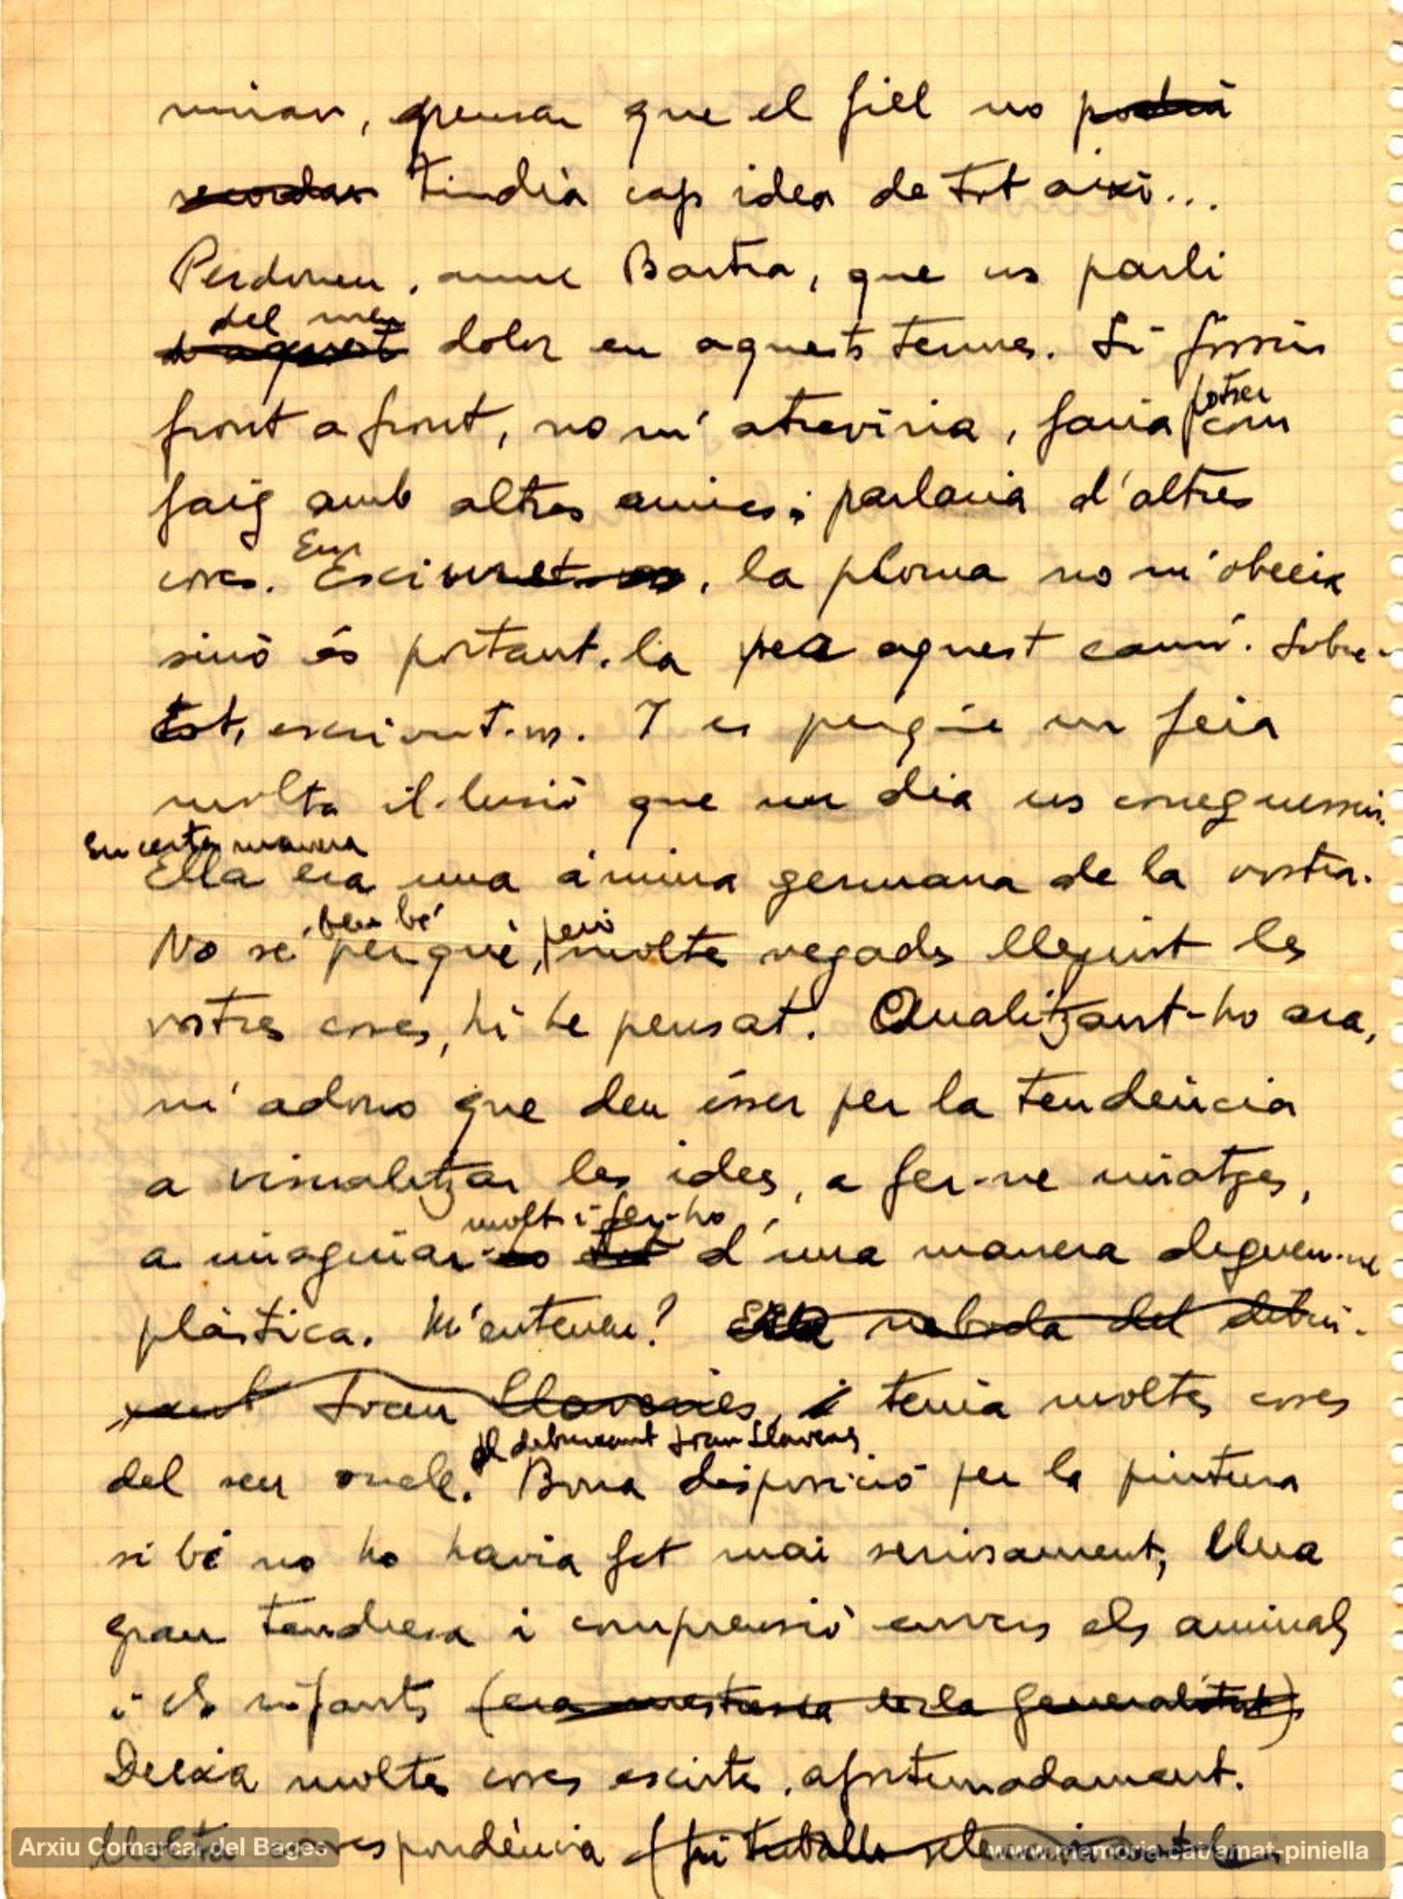 minar, pensar que el fill no podrà
recordar tindrà cap idea de tot això...
Perdoneu, amic Bartra, que us parli
del meu
d'aquest dolor en aquests termes. Si fóssim
potser
front a front, no m'atreviria, faria com
faig amb altres amics: parlaria d'altres
Em
coses. Escivint-vos, la ploma no m'obeeix
sinó és portant-la per aquest camí. Sobre-
tot, escrivint-vos. I és perquè em feia
molta il·lusió que un dia us coneguéssiu.
En certa manera
Ella era una ànima germana de la vostra.
ben bé però
No sé perquè, molte vegades llegint les
vostres coses, hi he pensat. Analitzant-ho ara,
m'adono que deu ésser per la tendència
a visualitzar les idees, a fer-ne imatges,
molt i fer-ho
a imaginar-ho tot d'una manera diguem-ne
plàstica. M'enteneu? Era neboda del dibui-
xant Joan Llaverias, i tenia moltes coses
el dibuixant Joan Llaverias
del seu oncle. Bona disposició per la pintura
si bé no ho havia fet mai seriosament; Una
gran tendresa i comprensió envers els animals
i els infants (era mestressa de la Generalitat)
Deixa moltes coses escrites, afortunadament.
Molta correspondència (fui treballs
Arxiu Comarcal del Bages
www.memoria.cat/amat-piniella